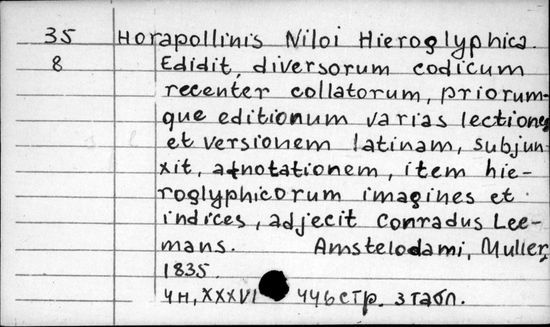 35 Horapollinis Niloi Hieroglyphica.
8 Edidit, diversorum codicum
recenter collatorum, priorum-
que editionum varias lectiones
et versionem latinam, subjun-
xit, adnotationem, item hie-
roglyphicorum imagines et
indices, adjecit Conradus Lee-
mans. Amstelodami, Muller,
1835.
4н, XXXVI 446 стр. 3 табл.